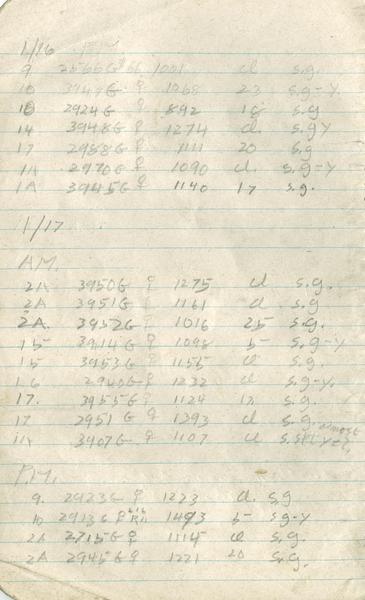 1/16 P.M.
9 2566G ♀ 1001 cl s.g.
10 3949G ♀ 1268 23 s.g-y.
10 2924G ♀ 892 18 s.g
14 3948G ♀ 1274 cl. s.gy
17 2988G ♀ 1111 20 s.g
1A 2970G ♀ 1090 cl. s.g-y
1A 3945G ♀ 1140 17 s.g.
1/17
A.M.
2A 3950G ♀ 1275 cl s.g.
2A 3951G ♀ 1161 cl s.g
2A. 3952G ♀ 1016 25 s.g.
15 3914G ♀ 1098 5- s.g-y
15 3953G ♀ 1155 cl s.g.
16 2940G ♀ 1232 cl s.g-y.
17. 3955G ♀ 1124 12 s.g.
17 2951G ♀ 1393 cl s.g
11A 3907G ♀ 1107 cl s.g almost y-
P.M.
9. 2923G ♀ 1223 cl. s.g
10 2913G ♀ 1493 5- s.g-y
2A 2715G ♀ 1114 cl s.g.
2A 2945G ♀ 1221 20 s.g.